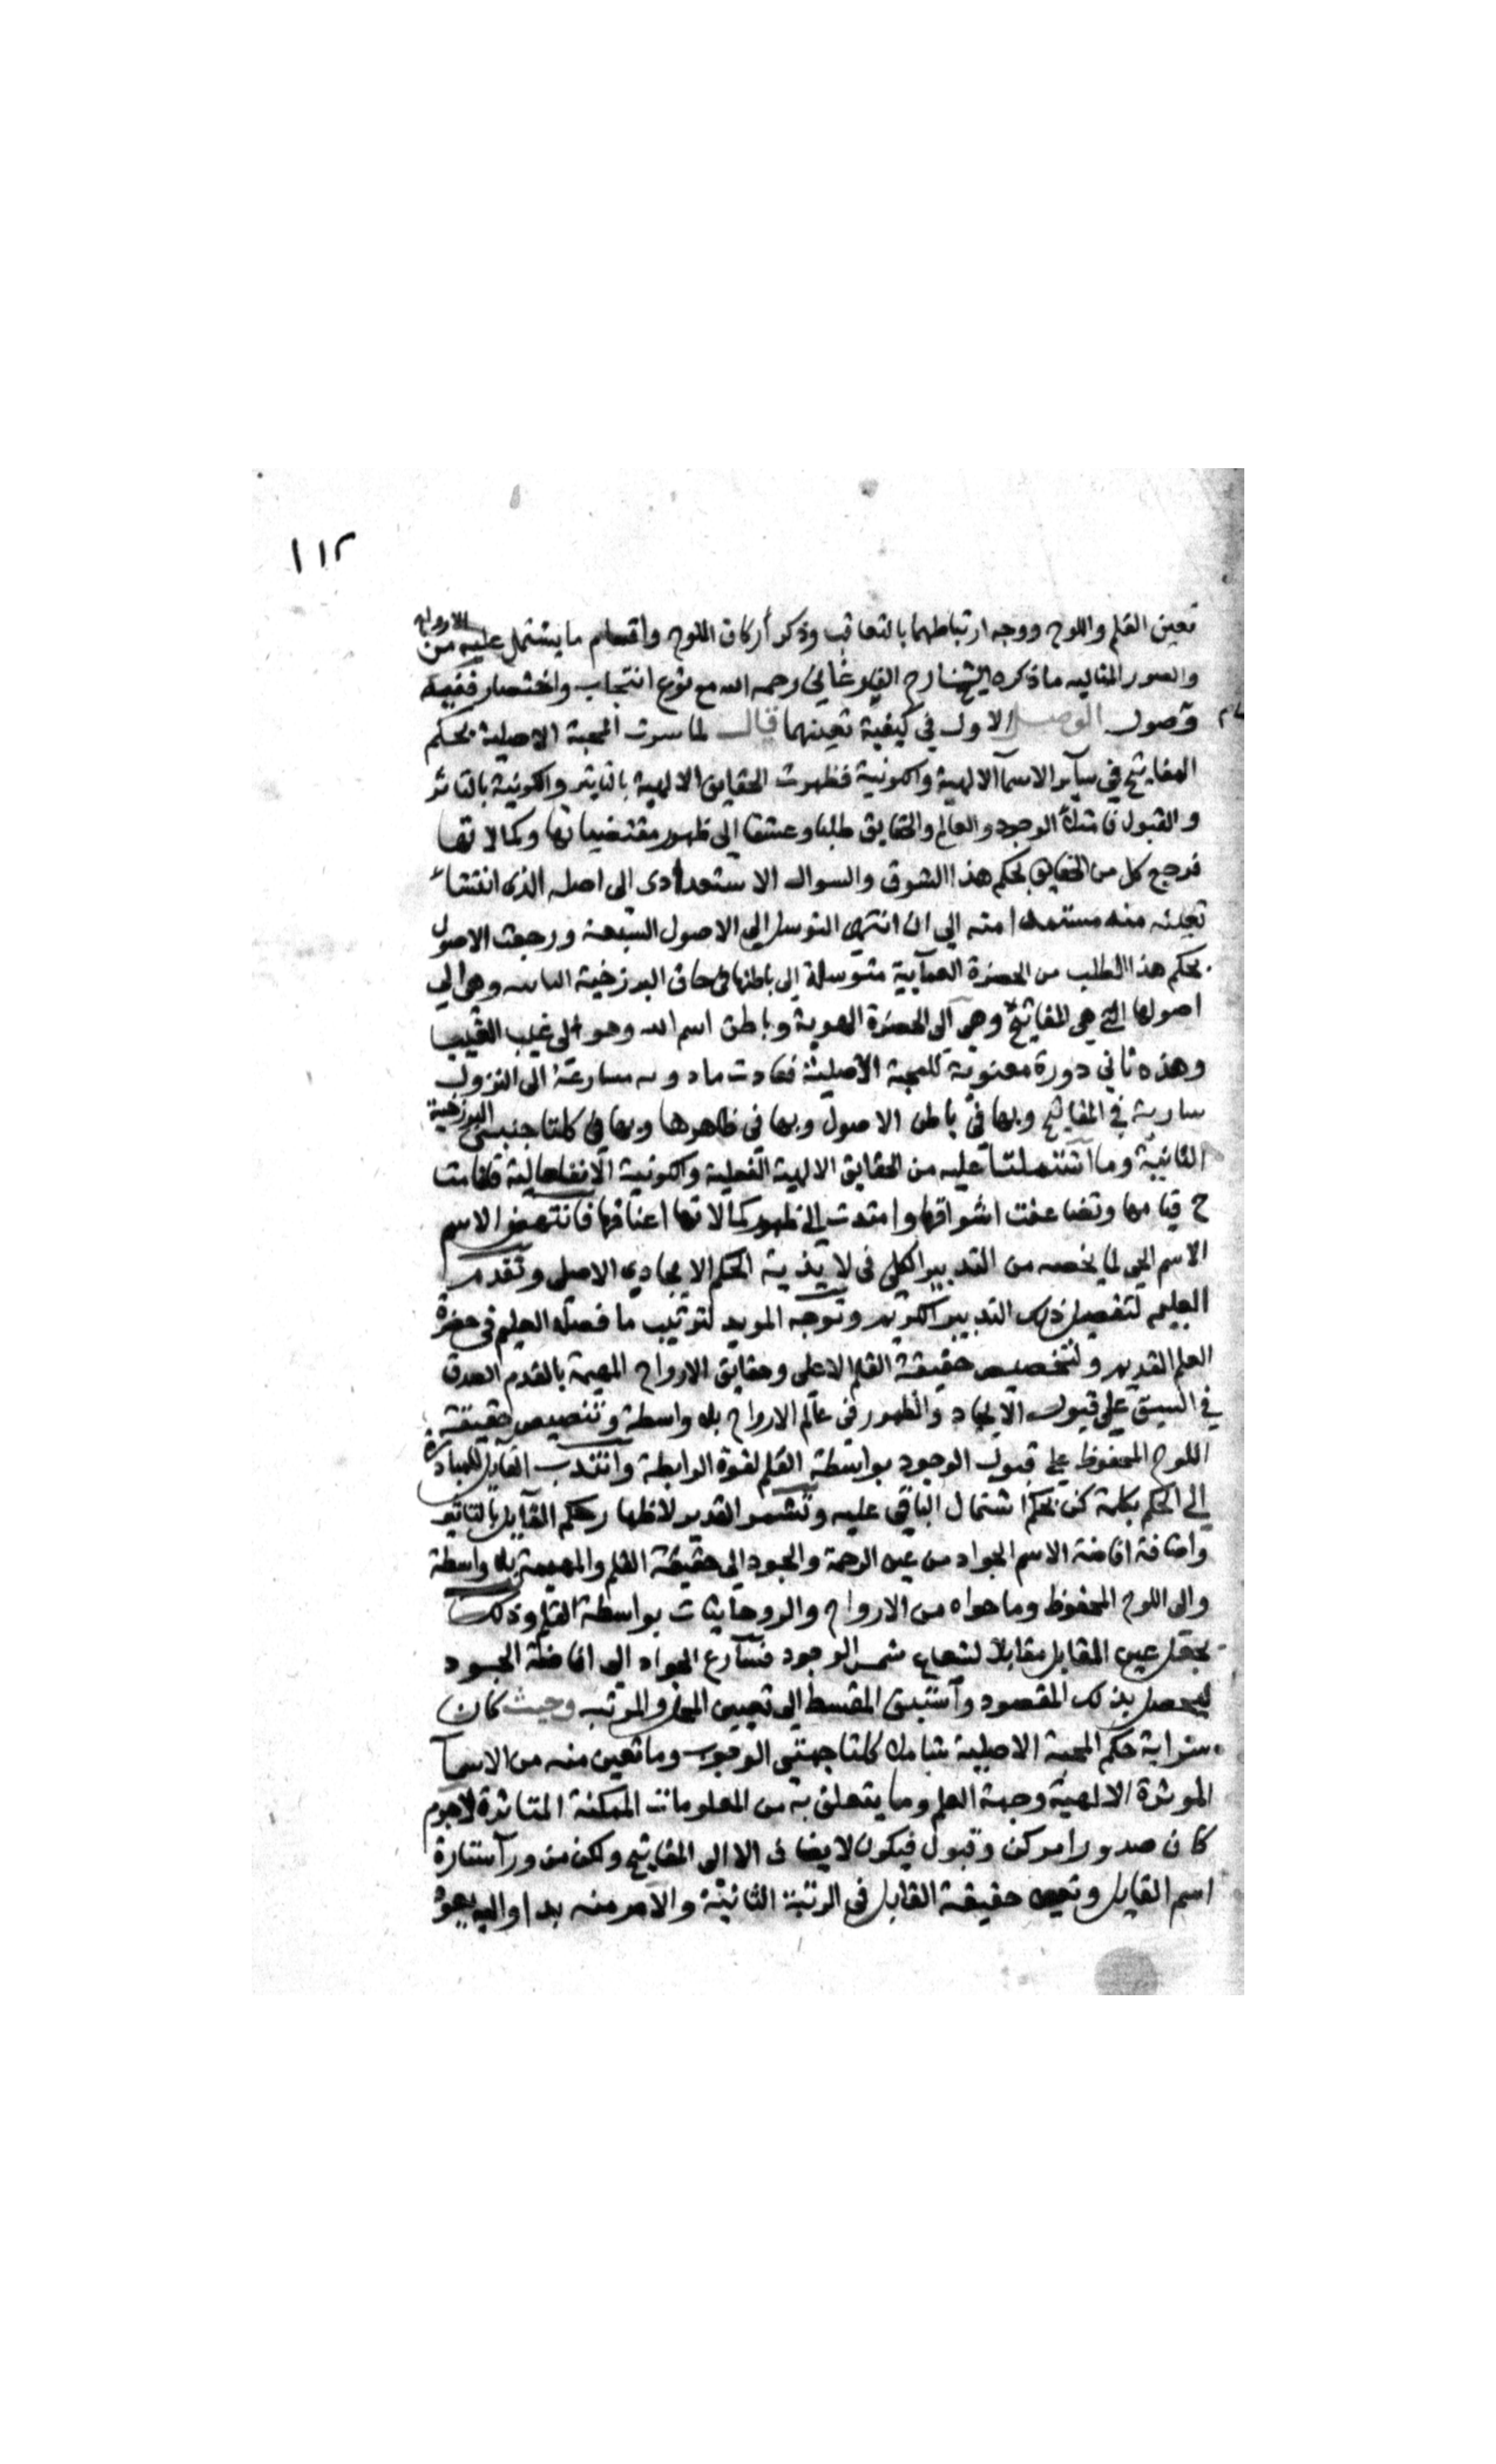 ١١٢
تعين القلم واللوح ووجه ارتباطهما بالتعاقب وذكر أركان اللوح واقسام ما يشتمل عليه من الارواح
والصور المثاليه ما ذكره الشيخ الفرغاني رحمه الله مع نوع انتجاب واختصار ففيه
وصول الوصل الاول في كيفية تعينهما قال لما سرت المحبة الاصلية بحكم
المفاتيح في سآير الاسمآ الالهية والكونية فظهرت الحقايق الالهية بالتاثير والكونية بالتاثر
والقبول فامتلأ الوجود والعالم والحقايق طلبا وعشقا الى ظهور مقتضياتها وكمالاتها
فرجع كل من الحقايق بحكم هذا الشوق والسوال الاستعدادى الى اصله الذى انتشاء
تعينه منه مستمدا منه الي ان انتهى التوسل الى الاصول السبعة ورجعت الاصول
بحكم هذا الطلب من الحضرة العمآيية متوسلة الى باطنها في حاق البرزخية وهى الي
اصولها التى هي المفاتيح وهى الى الحضرة الهوية وباطن اسم الله وهو الى غيب الغيب
وهذه ثاني دورة معنوية للمحبة الاصلية فعادت مسارعة الى النزول
سارية في المفاتيح وبها في باطن الاصول وبها في ظاهرها وبها في كلتا جنبتى البرزخية
الثانية وما اشتملتا عليه من الحقايق الالهية الفعلية والكونية الانفعالية فقامت
ح قيامها وتضاعفت اشواقها وامتدت الى ظهور كمالاتها اعناقها فانتهض الاسم
الاسم الحى لما يخصه من التدبير الكلى فى الحكم الايجادي الاصلى وتقدم
العليم لتفصيل ذلك التدبير وتوجه المريد لترتيب ما فصله العليم في حضرة
العلم القديم ولتخصيص حقيقة القلم الاعلى وحقايق الارواح المهيمة بالقدم الصدق
في السبق على قبول الايجاد والظهور في عالم الارواح بلا واسطة وتنصيص حقيقة
اللوح المحفوظ على قبول الوجود بواسطة القلم لقوة الرابطة وانتدب القايل للمبادرة
الى الحكم بكلمة كن بحكم اشتمال الباقي عليه وتشمر القدير لاظهار حكم القايل بالتاثير
واضافة افاضة الاسم الجواد من عين الرحمة والجود الى حقيقة القلم والمهيمة بلا واسطة
والى اللوح المحفوظ وما حواه من الارواح والروحانيات بواسطة القلم وذلك
بجعل عين المقابل مقابلا لشعاع شمس الوجود فسارع الجواد الى افاضة الجود
ليحصل بذلك المقصود واستبق المقسط الى تعيين المحل والمرتبه وحيث كان
سراية حكم المحبة الاصلية شاملا كلتا جهتى الوجوب وما تعين منه من الاسمآ
الموثرة الالهية وجهة العلم وما يتعلق به من المعلومات الممكنة المتاثرة لاجرم
كان صدور امر كن وقبول فيكون لا يضاف الا الى المفاتيح ولكن من ورآ ستارة
اسم القايل وتعين حقيقة القابل في الرتبة الثانية والامر منه بدا واليه يعود